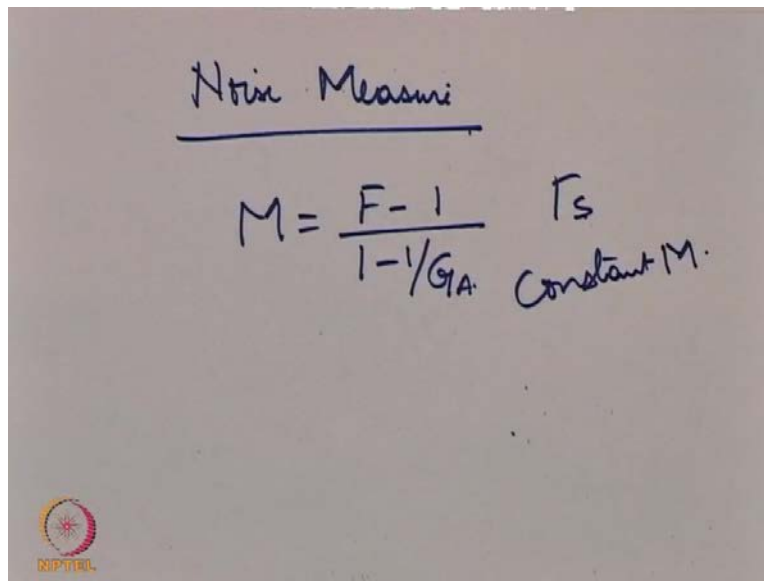 Noise Measure
M = F - 1 / 1 - 1/GA. Γs
Constant M.
NPTEL